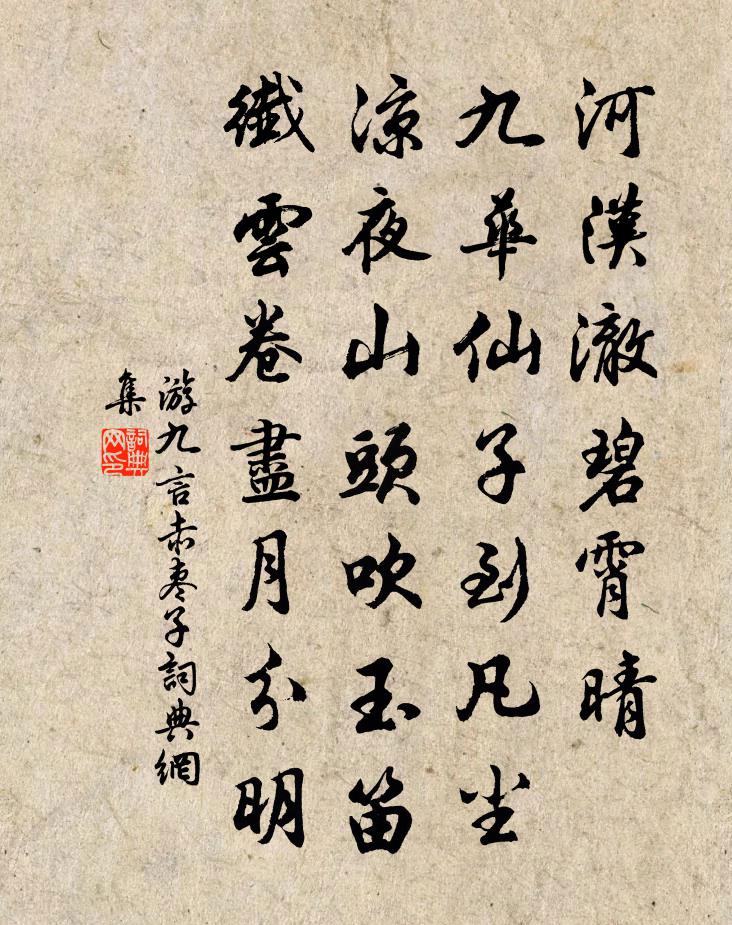 河漢澈碧霄晴
九華仙子到凡尘
涼夜山頭吹玉笛
纖雲卷盡月分明
游九言赤棗子詞典網
集
詞典
网印